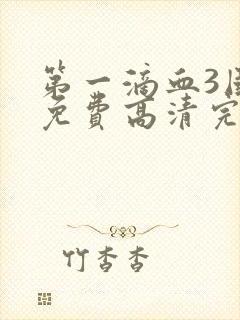 第一滴血3
免费高清完
竹杏杏